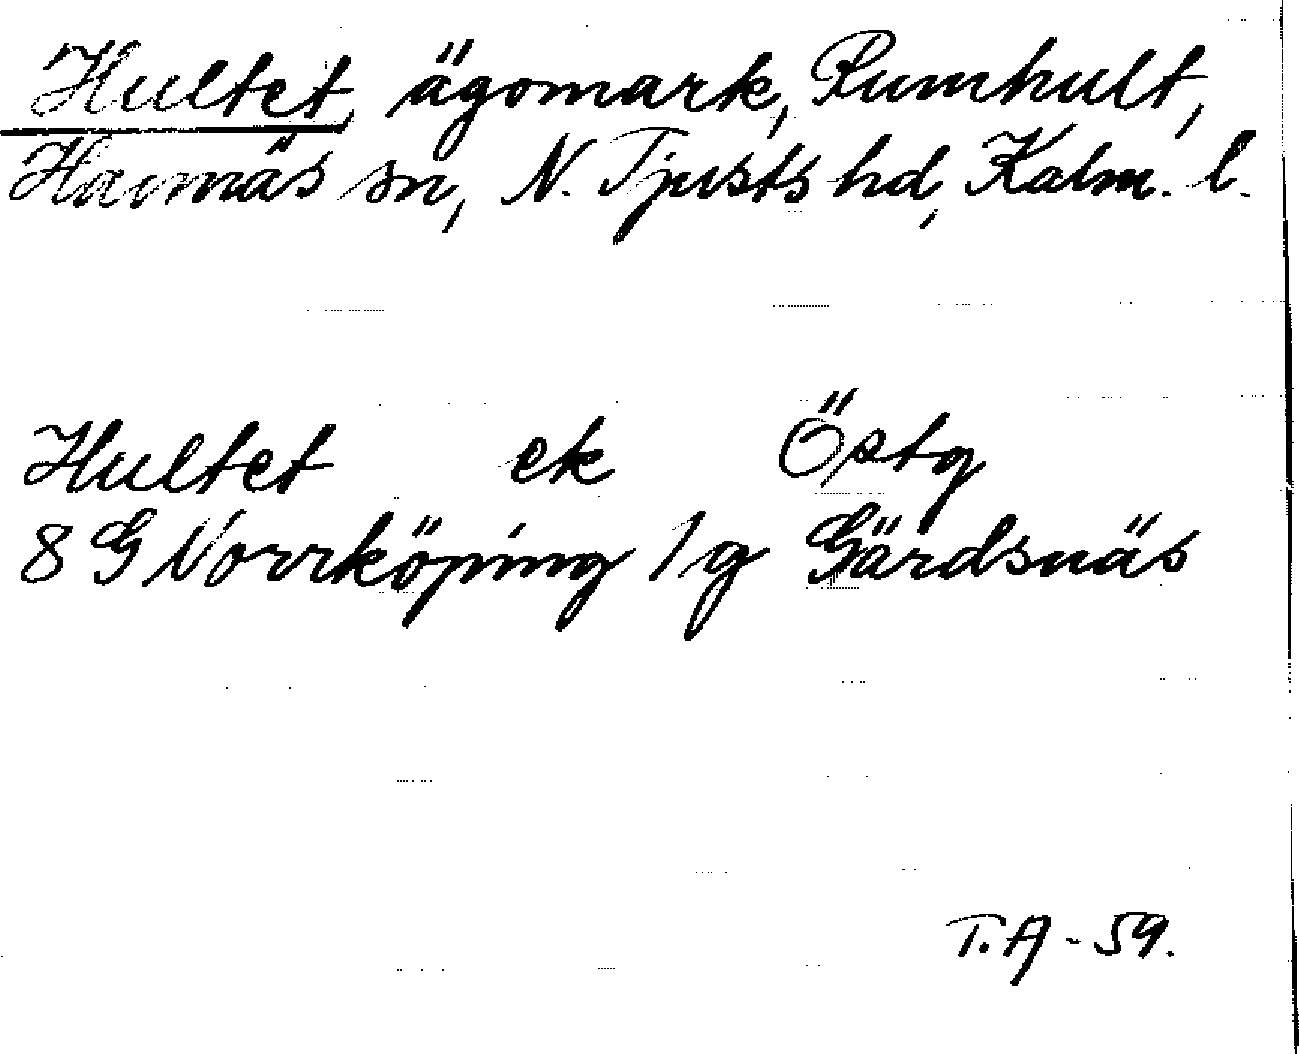 Hultet, ägomark, Rumhult,
Hannäs sn, N. Tjusts hd, Kalm. l.
Hultet ek Östg
8 G Norrköping 1 g Gärdsnäs
T. A - 59.